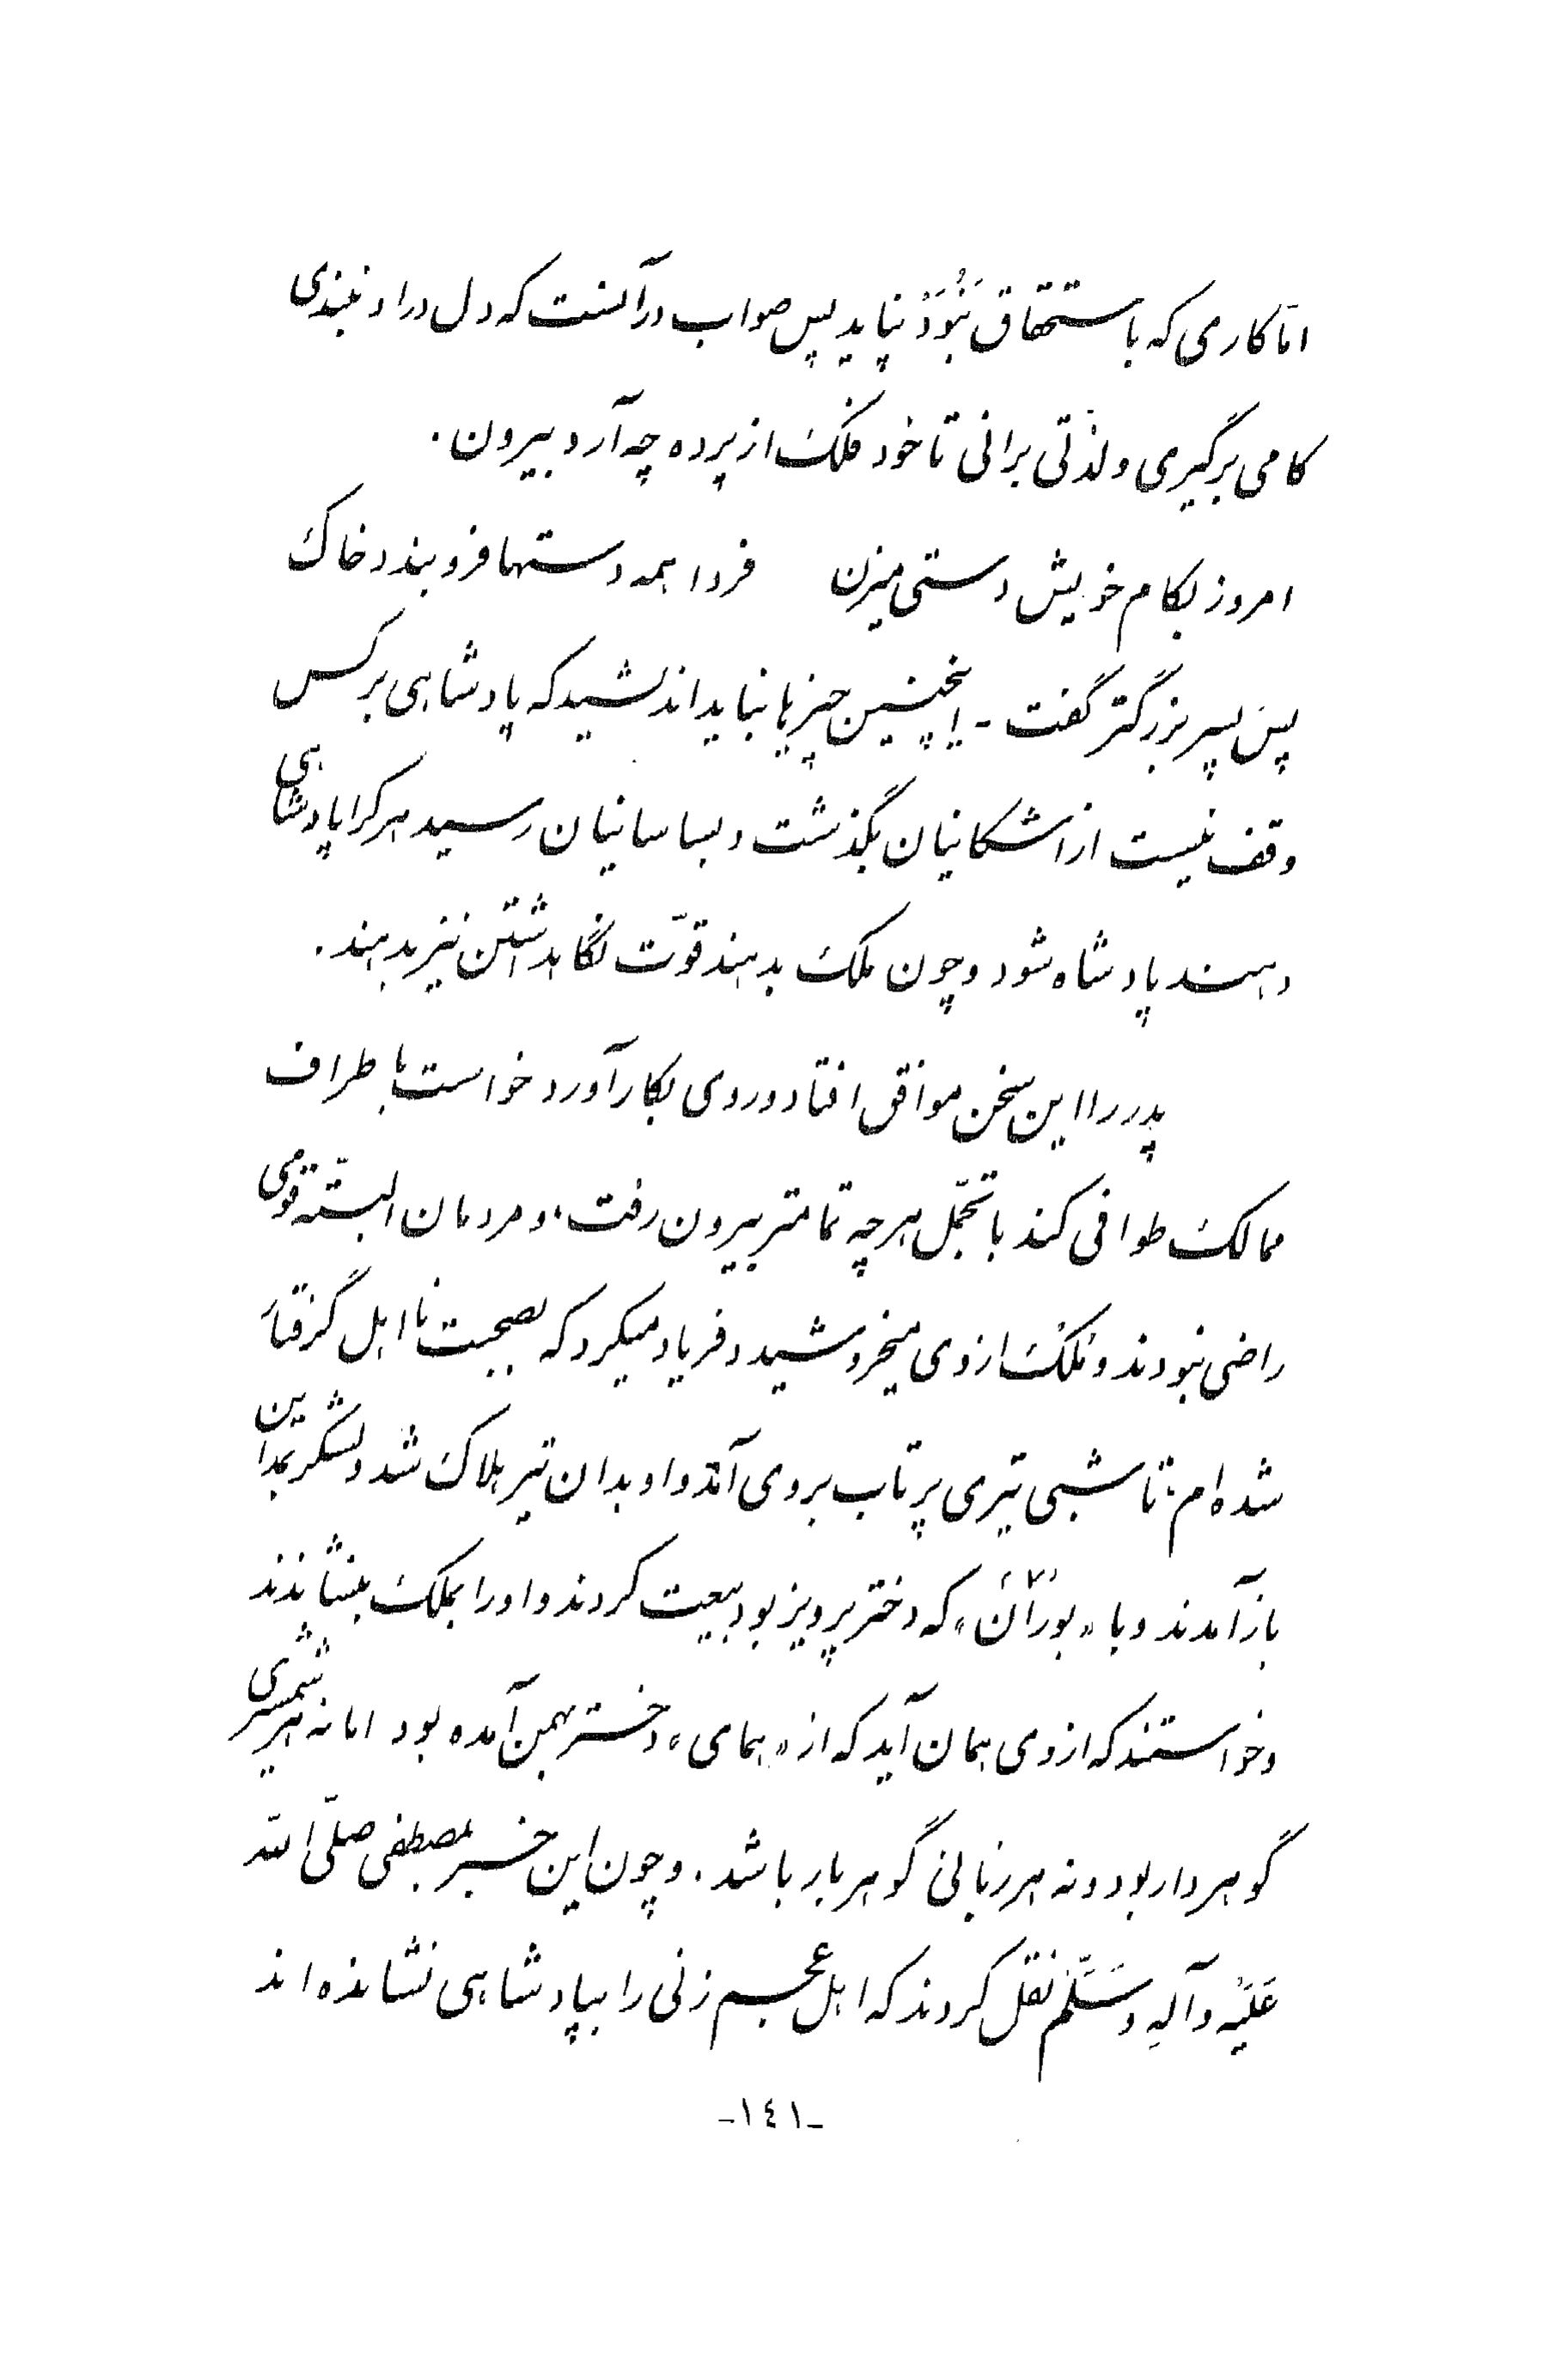 امّا کاری که باستحقاق نَبُوَدْ نپاید پس صواب در آنست که دل در او نبندی
کامی برگیری و لذّتی برانی تا خود فلک از پرده چه آرد بیرون .
امروز بکام خویش دستی میزن    فردا همه دستها فرو بندد خاک
پس پسر بزرگتر گفت - اینچنین چیزها نباید اندیشید که پادشاهی بر کس
وقف نیست از اشکانیان بگذشت و بساسانیان رسید هر کرا پادشاهی
دهند پادشاه شود و چون ملک بدهند قوّت نگاهداشتن نیز بدهند .
پدر را این سخن موافق افتاد و روی بکار آورد خواست باطراف
ممالک طوافی کند با تجمّل هر چه تمامتر بیرون رفت، و مردمان البتّه قومی
راضی نبودند و مُلک از وی میخروشید و فریاد میکرد که بصحبت نا اهل گرفتار
شده‌ام؛ تا شبی تیری پرتاب بروی آمد و او بدان تیر هلاک شد و لشکر بمداین
باز آمدند و با «بوران» که دختر پرویز بود بیعت کردند و او را بملک بنشاندند
و خواستند که از وی همان آید که از «همای» دختر بهمن آمده بود اما نه هر شمشیری
گوهردار بود و نه هر زبانی گوهربار باشد . و چون این خبر بمصطفی صلّی الله
عَلَیْه وَآلِهِ وَسَلَّمْ نقل کردند که اهل عجم زنی را بپادشاهی نشانده‌اند
-١٤١-